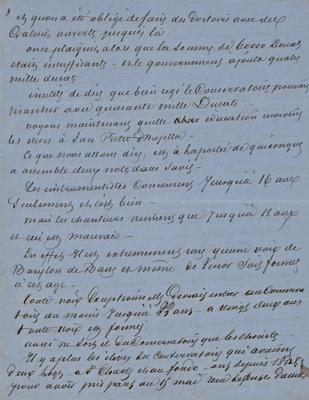 et qu'on a été obligé de faire des Dortoirs avec des
Galeries ouverts jusques là
on se plaignait alors que la somme de 60000 Ducats
était insuffisante - et le gouvernement ajouta quatre
mille ducats
inutile de dire que bien régi le Conservatoire pouvait
marcher avec quarante mille Ducats -
voyons maintenant quelle education reçoivent
les élèves à San Pietro Majella -
Ce que nous allons dire, est à la portée de quiconque
a assemblé deux notes dans sa vie -
Les instrumentistes Concourent jusqu'à 16 ans
Seulement et c'est bien -
mais les chanteurs n'entrent que jusqu'à 18 ans
et ceci est mauvais -
En effet il est extrêmement rare qu'une voix de
Baryton de Basse et même de Ténor soit formée
à cet âge -
toute voix exceptionnelle devrait entrer au Conserva
toire au moins jusqu'à 22 ans - a vingt deux ans
toute voix est formée
aussi ne sort-il du Conservatoire que des choristes -
Il y a plus les élèves du Conservatoire qui anciennement
à St Charles - ont depuis 1848
pour avoir pris part au 15 mai une défense d'aller